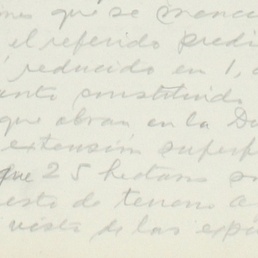 que se
el referido predi
reducido en 1,
constituido
que obran en la Di
extensión superf
que 25
esto de terreno a
vista de las exp